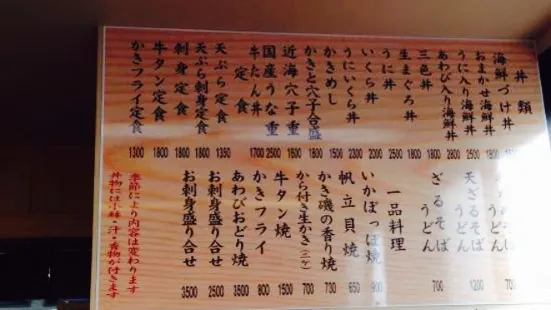 丼類
海鮮づけ丼
おまかせ海鮮丼 1800
うに入り海鮮丼 2500
あわび入り海鮮丼 2800
三色丼 1800
生まぐろ丼 1800
うに丼 2500
いくら丼 2000
うにいくら丼 2300
かきめし 1500
かきと穴子合盛 1800
近海穴子重 1600
国産うな重 2500
牛たん丼 1700
定食
天ぷら定食 1350
天ぷら刺身定食 1800
刺身定食 1800
牛タン定食 1800
かきフライ定食 1300
そば
うどん 700
天ざるそば
うどん 1200
ざるそば
うどん 700
一品料理
いかぽっぽ焼 900
帆立貝焼 650
かき磯の香り焼 730
から付き生かき(二ケ) 700
牛タン焼 1500
かきフライ 800
あわびおどり焼 3500
お刺身盛り合せ 2500
お刺身盛り合せ 3500
季節により内容は変わります
丼物には小鉢・汁・香物が付きます